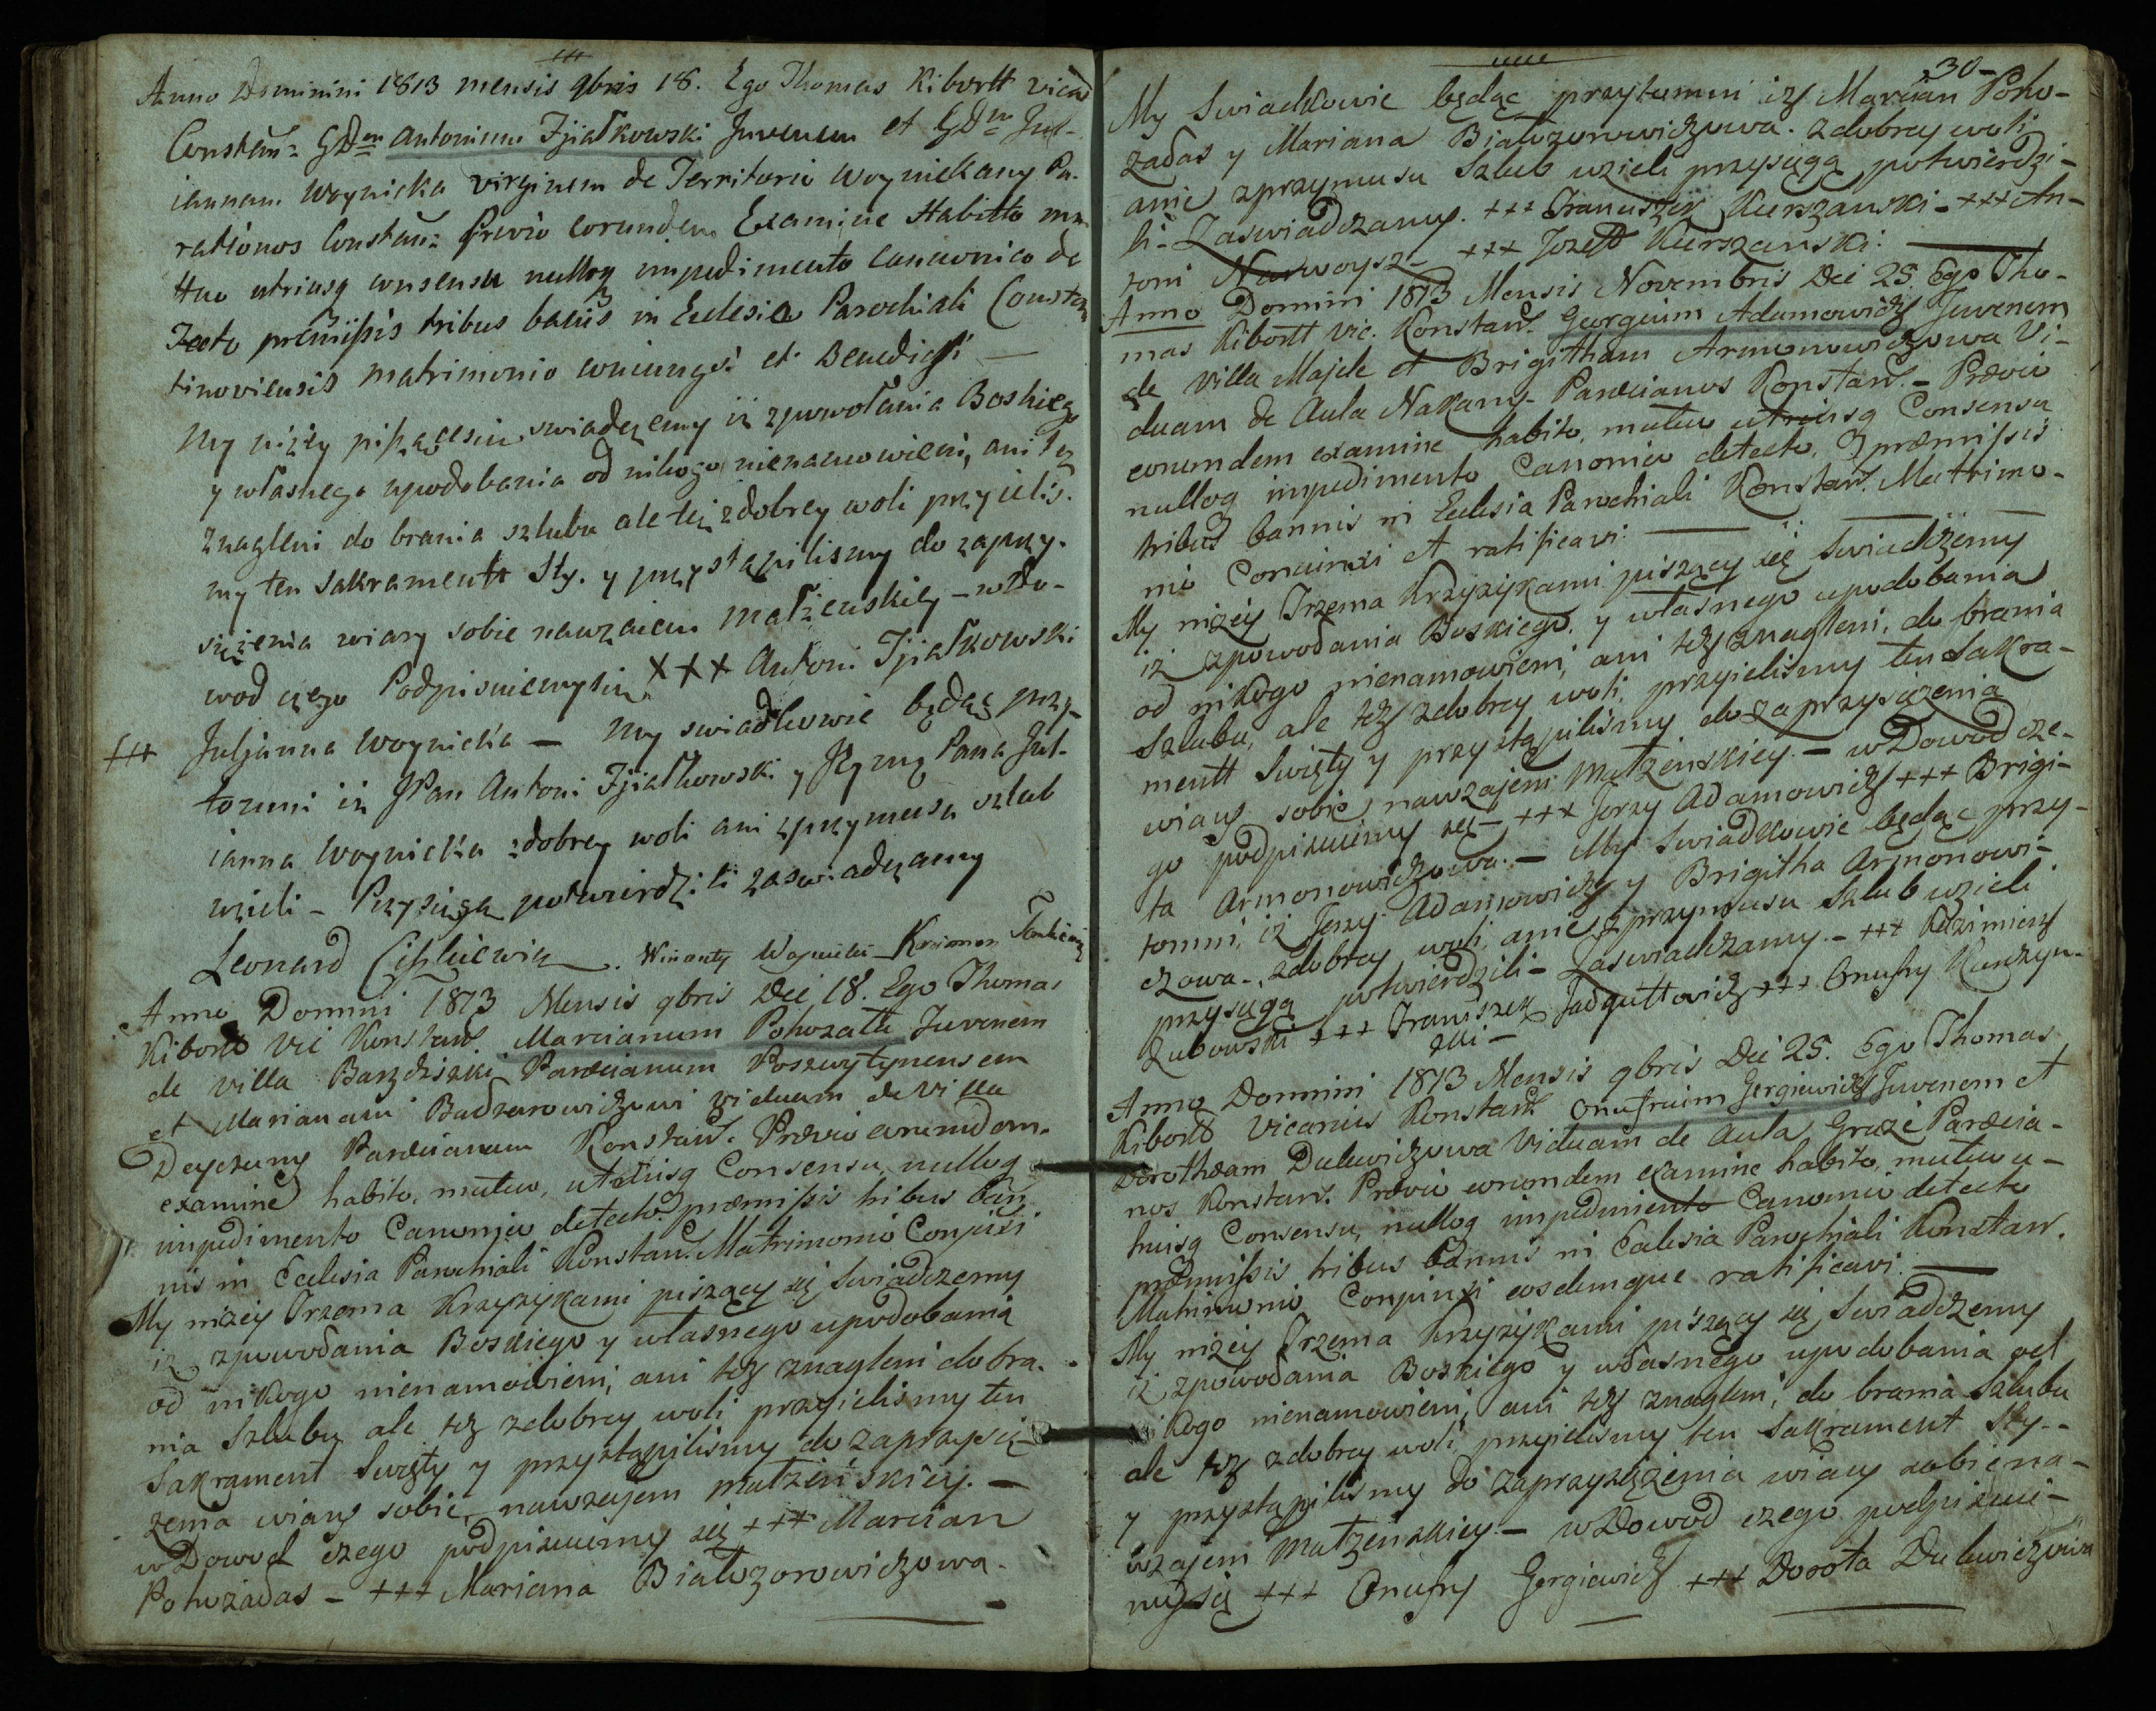 Anno Dominini 1813 mensis 9bris 18. Ego Thomas Kibortt vica
Constan: GDem Antonium Fjiałkowski Juvenem et GDm Jul-
iannam Woynicka virginem de Territorio Woyniekany Pa-
rationos Constan: Previo eorundem Examine Habitto mu-
ttuo utriusq consensu nulloq impedimento canonico de
Tecto premissis tribus banis in Eclesia Parochiali Constan
tinoviensis matrimonio coniungsi et Benedixi —
My niżey piszącesię swiadczemy iż zpowołania Boskiego
y własnego upodobania od nikogo nienamowieni, ani tez
znagleni do brania szlubu ale też zdobrey woli przyielis-
my ten Sakramentt Sty. y przystąpilismy do zaprzy-
siężenia wiary sobie nawzaiem małżenskiey - wdo-
wod czego Podpisuiemysie +++ Antoni Fjiałkowski
+++ Juljanna Woynicka — My swiadkowie będąc przy-
tomni iż JPan Antoni Fjiałkowski y Pana Jul-
ianna Woynicka zdobrey woli ani zprzymusu szlub
wzieli - Przysięgą potwierdzili zaswiadczamy
Leonard Winenty Woynicki
Anno Domini 1813 Mensis 9bris Dei 18. Ego Thomas
Kibortt Vic Konstan. Marcianum Pohozatti Juvenem
de villa Barzdziszki Paroecianum Poszwytynensem
et Marianam viduam de villa
Deyczuny Paroecianam Konstan. Proevio eorumdem
examine habito, mutuo, utriusq Consensu, nulloq
impedimento Canonico detecto proemissis tribus ban
nis in Ecclesia Parochiali Konstan. Matrimonio Conjuxi
My nizey Trzema Krzyzykami piszący się Swiadczemy
iz zpowodania Boskiego y własnego upodobania
od nikogo nienamowieni, ani tez znagleni do bra-
nia Szlubu ale tez zdobrey woli przyielismy ten
Sakrament Swięty y przystąpilismy do zaprzysię-
zenia wiary sobie, nawzajem małzenskiey. —
wDowod czego podpisuiemy się +++ Marcian
Pohozadas - +++ Mariana Białozorowiczowa.
30-
My Swiadkowie będąc przytomni iz Marcian Poho-
zadas y Mariana Białozorowiczowa. zdobrey woli
anie zprzymusu Szlub wzieli przysięgą potwierdzi-
li - Zaswiadczamy. +++ Franciszek Kurszanski - +++ An-
toni +++ Jozeff Kurszanski. —
Anno Domini 1813 Mensis Novembris Dei 25. Ego Tho-
mas Kibortt Vic. Konstan. Georgium Adamowicz Juvenem
de villa Majele et Brigitham Armonowiczowa Vi-
duam de Aula Nakany - Paroecianos Konstan. - Proevio
eorumdem examine habito, mutuo utriusq Consensu
nulloq impedimento Canonico detecto, proemissis
tribus bannis in Eclesia Parochiali Konstan. Matrimo-
nio Conciunxi et ratificavi. —
My niżey Trzema Krzyzykami piszący się Swiadczemy
iż zpowodania Boskiego, y własnego upodobania
od nikogo nienamowieni, ani też znagleni, do brania
Szlubu, ale tez zdobrey woli, przyielismy ten Sakra-
mentt Swięty y przystąpilismy do zaprzysiężenia
wiary sobie nawzajem Małzenskiey. — wDowod cze-
go podpisuiemy się - +++ Jerzy Adamowicz +++ Brigi-
ta Armonowiczowa. — My Swiadkowie będąc przy-
tomni, iż Jerzy Adamowicz y Brigitha Armonowi-
czowa -, zdobrey woli, anie zprzymusu Szlub wzieli
przysięgą potwierdzili - Zaswiadczamy. - +++ Kazimierz
Zubowski +++ Franciszek Jadguttowicz +++ Onufry Kunszyn-
ski -
Anno Domini 1813 Mensis 9bris Dei 25. Ego Thomas
Kibortt Vicarius Konstan Onufrium Gergiewicz Juvenem et
Dorotheam Dulewiczowa Viduam de Aula Gruze Paroecia-
nos Konstan. Proevio eorundem examine habito, mutuo u-
triusq Consensu, nulloq impedimento Canonico detecto
proemissis tribus bannis in Ecclesia Parochiali Konstan.
Matrimonio Conjunxi eosdemque ratificavi. —
My nizey Trzema Krzyzykami piszący się Swiadczemy
iż zpowodania Boskiego y własnego upodobania od
nikogo nienamowieni, ani tez znagleni, do brania Szlubu
ale tez zdobrey woli przyielismy ten Sakrament Sty. -
y przystąpilismy do zaprzysiężenia wiary sobie na-
wzajem Małzenskiey. — wDowod czego podpisuie-
mysię +++ Onufry Gergiewicz +++ Dorota Dulewiczowa